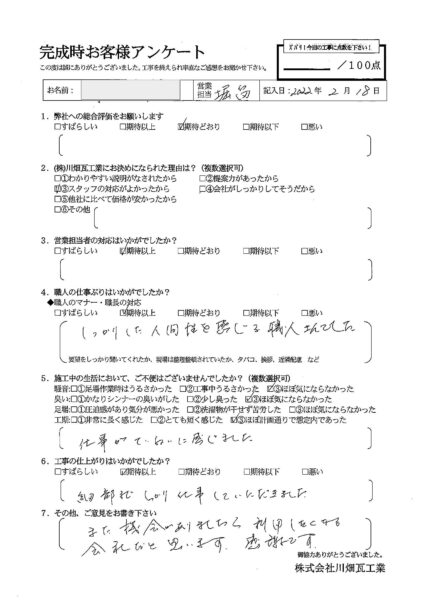 完成時お客様アンケート
この度は誠にありがとうございました。工事を終えられ率直なご感想をお聞かせ下さい。
ズバリ!今回の工事に点数を下さい!
/100点
お名前:
営業担当
記入日:2022年 2月 18日
1.弊社への総合評価をお願いします
□すばらしい □期待以上 ☑期待どおり □期待以下 □悪い
2.(株)川畑瓦工業にお決めになられた理由は?(複数選択可)
□①わかりやすい説明がなされたから □②提案力があったから
☑③スタッフの対応がよかったから □④会社がしっかりしてそうだから
□⑤他社に比べて価格が安かったから
□⑥その他
3.営業担当者の対応はいかがでしたか?
□すばらしい ☑期待以上 □期待どおり □期待以下 □悪い
4.職人の仕事ぶりはいかがでしたか?
◆職人のマナー・職長の対応
□すばらしい ☑期待以上 □期待どおり □期待以下 □悪い
しっかりした人間性を感じる職人さんでした
要望をしっかり聞いてくれたか、現場は整理整頓されていたか、タバコ、挨拶、近隣配慮 など
5.施工中の生活において、ご不便はございませんでしたか?(複数選択可)
騒音:□①足場作業時はうるさかった □②工事中うるさかった ☑③ほぼ気にならなかった
臭い:□①かなりシンナーの臭いがした □②少し臭った ☑③ほぼ気にならなかった
足場:□①圧迫感があり気分が悪かった □②洗濯物が干せず苦労した □③ほぼ気にならなかった
工期:□①非常に長く感じた □②とても短く感じた ☑③ほぼ計画通りで想定内であった
仕事がていねいに感じました
6.工事の仕上がりはいかがでしたか?
□すばらしい ☑期待以上 □期待どおり □期待以下 □悪い
細部もしっかり仕事していただきました
7.その他、ご意見をお書き下さい
また機会がありましたら利用したくなる
会社だと思います。感謝です。
御協力ありがとうございました。
株式会社川畑瓦工業